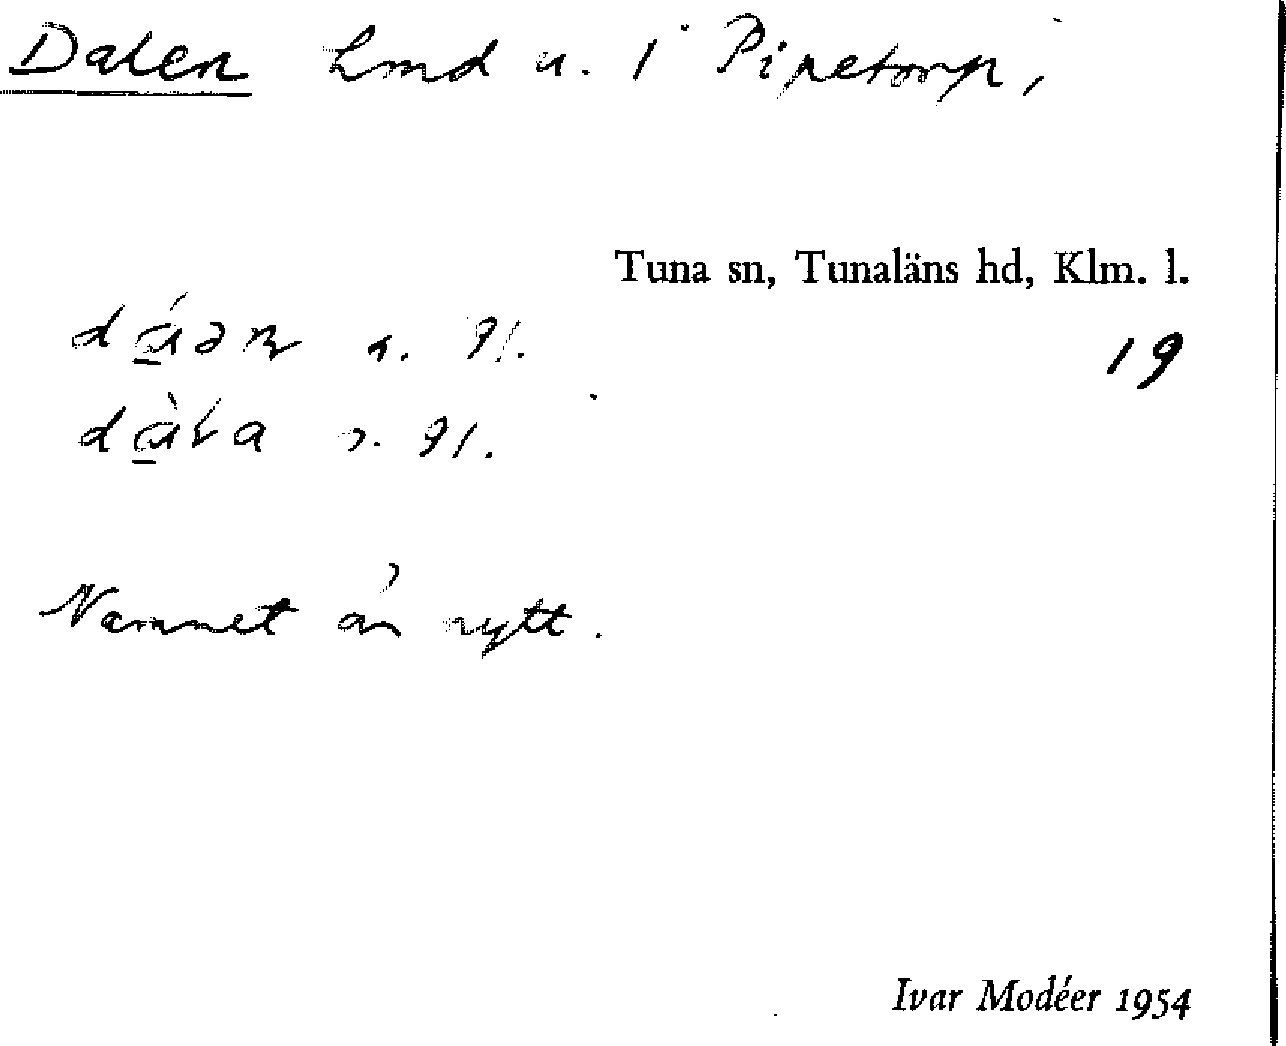 Dalen Lmd u. i Pipetorp,
Tuna sn, Tunaläns hd, Klm. l.
19
91.
91.
Namnet är nytt.
Ivar Modéer 1954